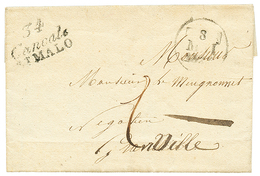 34
Cancale
ST MALO
8
Monsieur
Monsieur Le Mengnonnet
Négociant
Granville